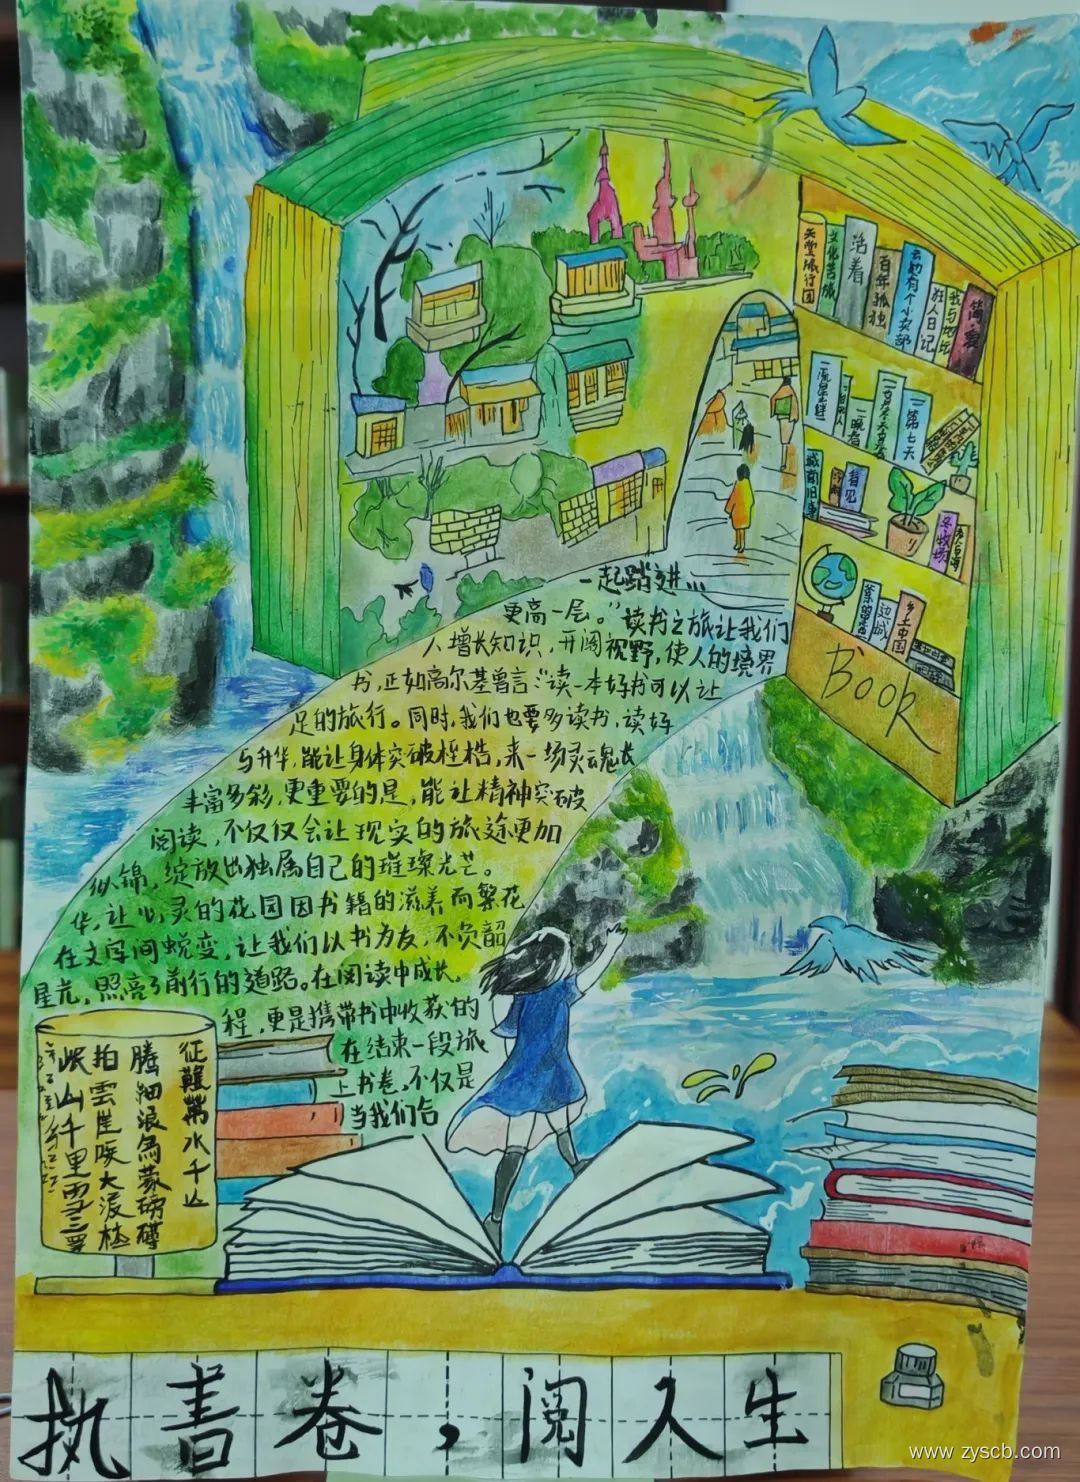 天堂旅行团
文化苦旅
活着
百年孤独
云边有个小卖部
狂人日记
我与地坛
简·爱
晚春
第七天
城南旧事
看见
边城
乡土中国
BOOK
当我们合
上书卷，不仅是
在结束一段旅
程，更是携带书中收获的
星光，照亮了前行的道路。在阅读中成长，
在文字间蜕变，让我们以书为友，不负韶
华，让心灵的花园因书籍的滋养而繁花
似锦，绽放出独属自己的璀璨光芒。
阅读，不仅仅会让现实的旅途更加
丰富多彩，更重要的是，能让精神突破
与升华，能让身体突破桎梏，来一场灵魂长
足的旅行。同时，我们也要多读书，读好
书，正如高尔基曾言：“读一本好书可以让
人增长知识，开阔视野，使人的境界
更高一层。”读书之旅让我们
一起踏进...
征難萬水千山
腾細浪烏蒙磅礴
拍雲崖暖大渡橋
岷山千里雪三軍
执書卷，阅人生
www.zyscb.com